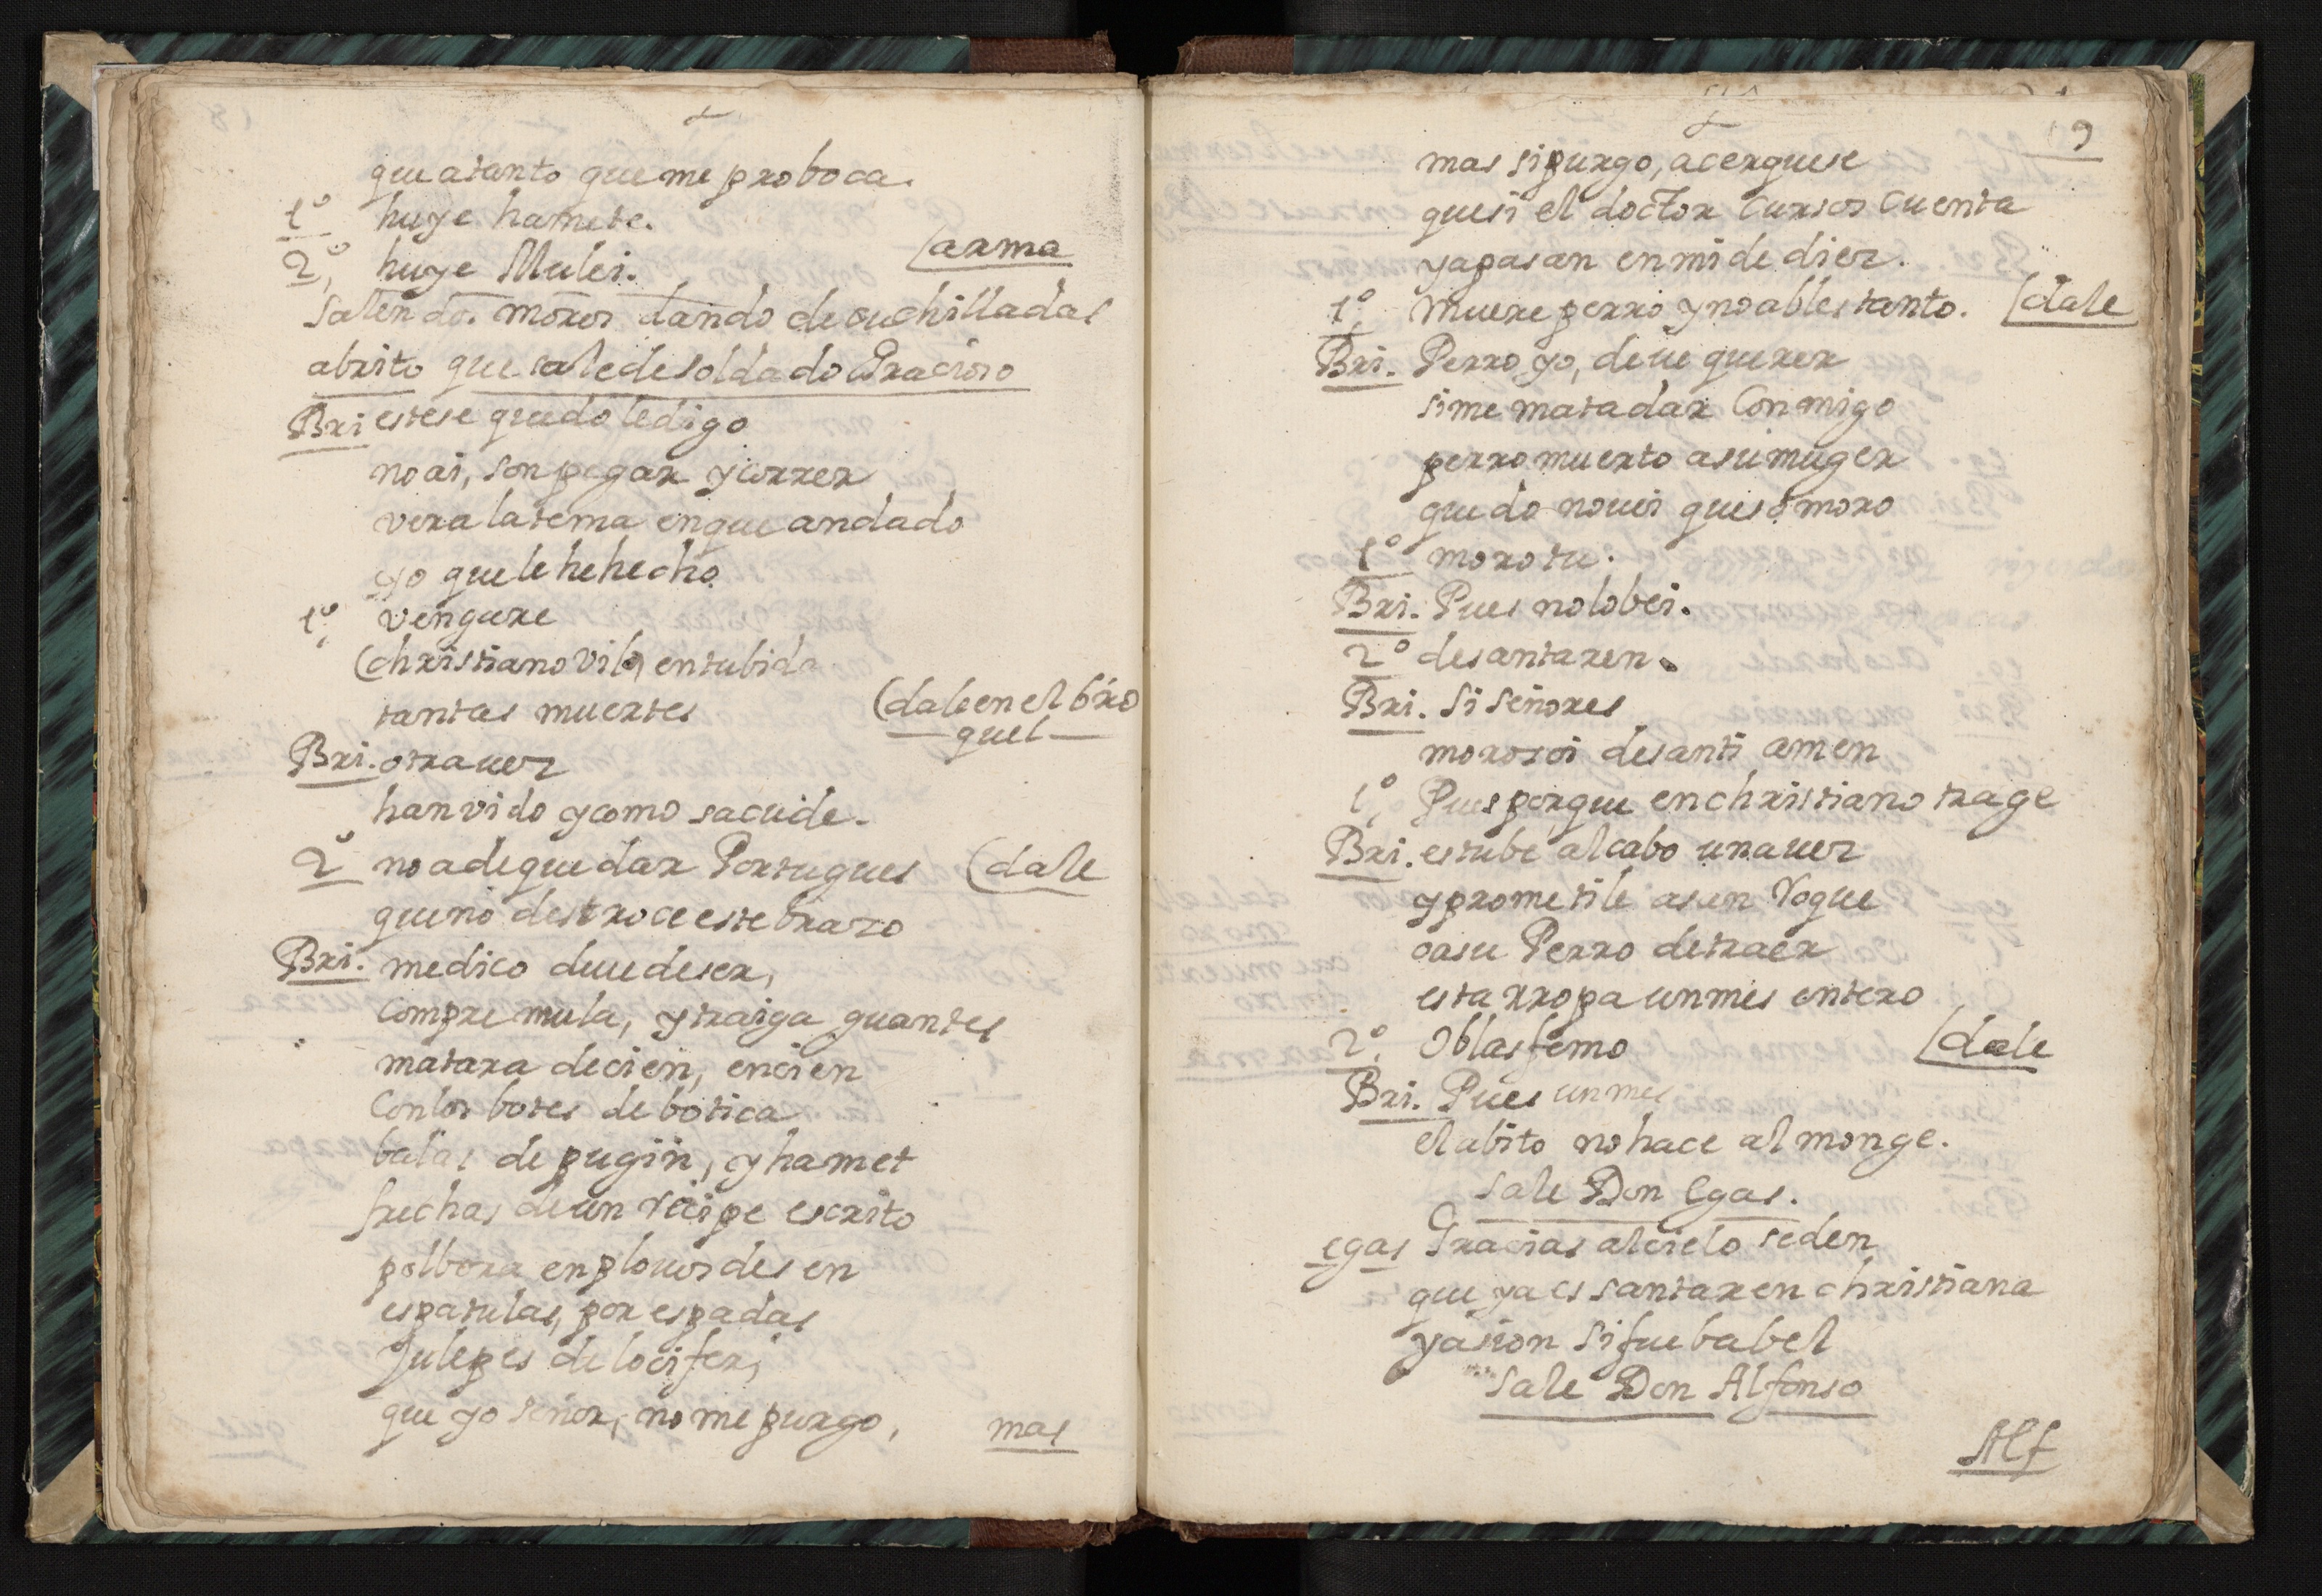 que atanto que me proboca.
1º huye hamete.
2º huye Mulei. (arma
Salen dos moros dando de cuchilladas
abrito que sale de soldado Gracioso
Bri estese quedo le digo
no ai, son pegar y correr
vera la tema en que an dado
yo que le he hecho
1º vengare
christiano vil, en tu bida
tantas muertes (dale en el bro
quel
Bri. otra uez
han vido y como sacude.
2º no a de quedar Portugues (dale
que no destroce este brazo
Bri. medico deue de ser,
compre mula, y traiga guantes
matara de cien, en cien
Con los botes de botica
balas de pugiin, y hamet
frechas de un recipe escrito
polbora en plouos des en
espatulas, por espadas
Julepes de locifer,
que yo señor, no me purgo, mas
9
mas si purgo, acerquese
que si el doctor cursos cuenta
ya pasan en mi de diez.
1º Muere perro y no ables tanto. (dale
Bri. Perro yo, deue querer
si me mata dar Conmigo
perro muerto a su muger
quedo no ueis que so moro
1º moro tu.
Bri. Pues no lo bei.
2º de santaren.
Bri. Si Señores
moro soi de santi amen
1º Pues porque en christiano trage
Bri. estube al cabo una uez
y prometile a san Roque
o a su Perro de traer
esta rropa un mes entero
2º O blasfemo (dale
Bri. Pues un mes
el abito no hace al monge.
Sale Don Egas.
egas Gracias al cielo se den
que ya es santaren christiana
ya sion si fue babel
Sale Don Alfonso
Alf